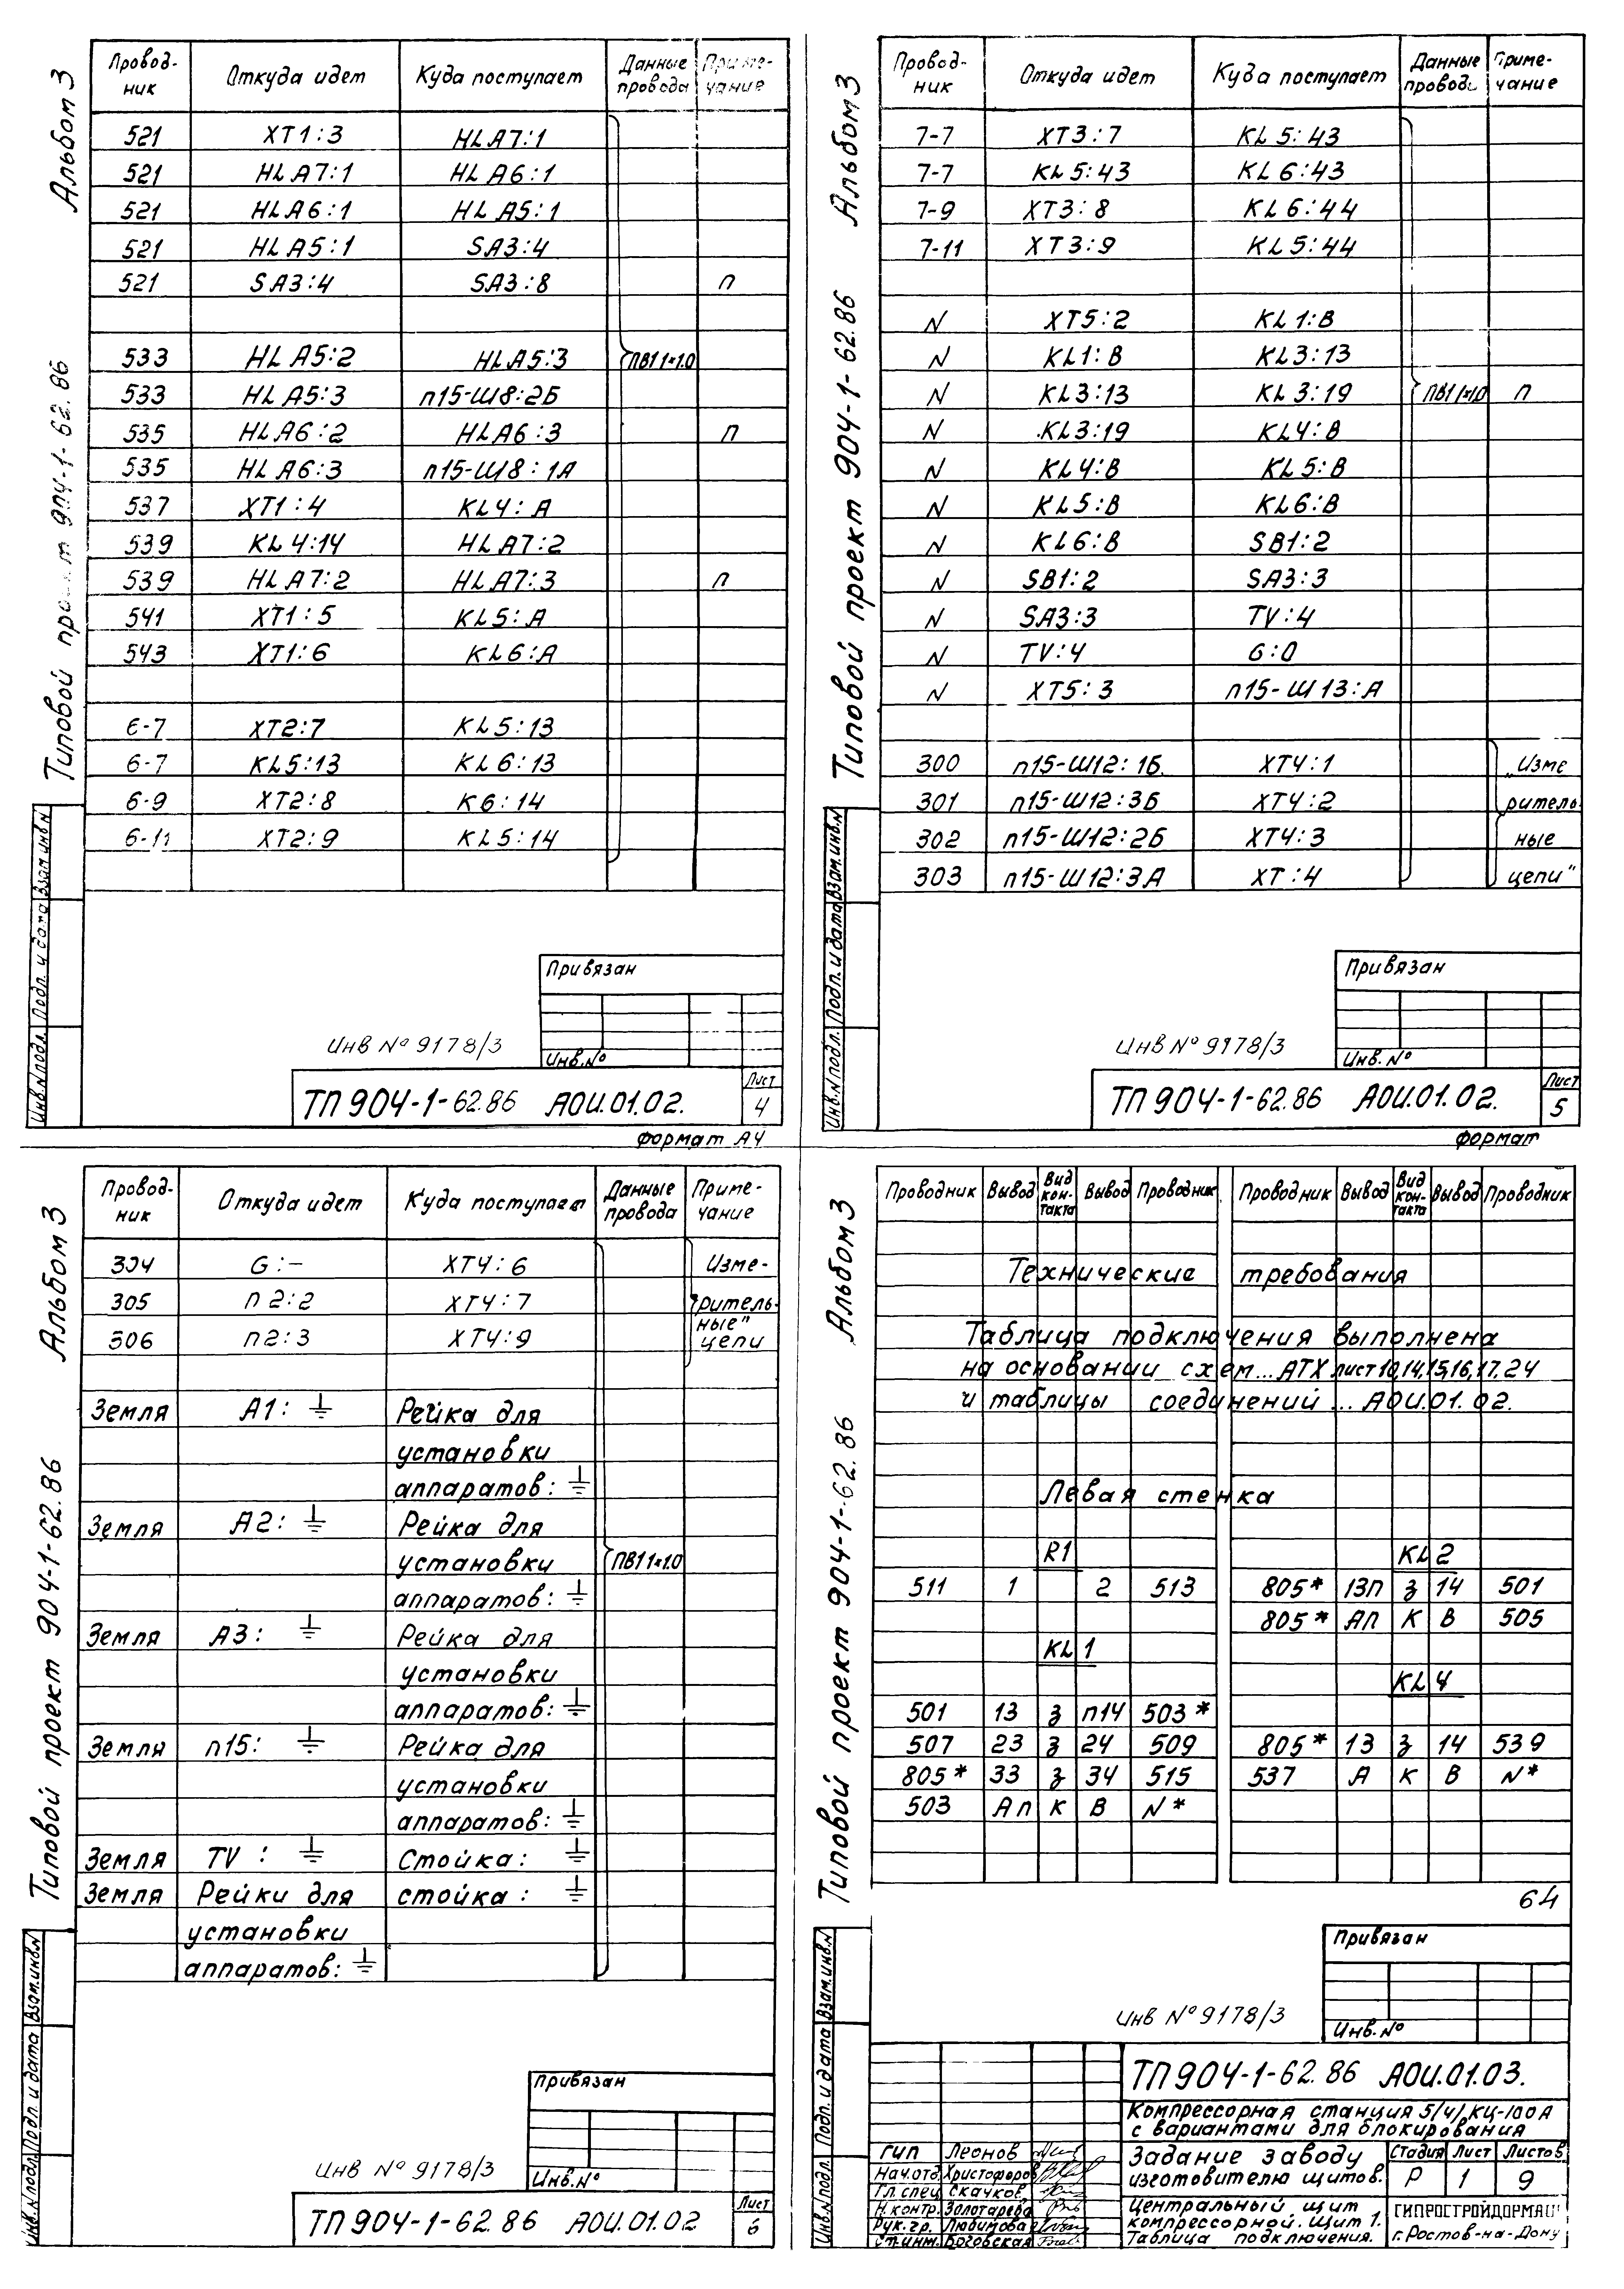 Альбом 3
Типовой проект 904-1-62.86
Провод-ник Откуда идет Куда поступает Данные провода Приме-чание
521 XT1:3 HLA7:1
521 HLA7:1 HLA6:1
521 HLA6:1 HLA5:1
521 HLA5:1 SA3:4
521 SA3:4 SA3:8 п
533 HLA5:2 HLA5:3 ПВ1 1×1.0
533 HLA5:3 п15-Ш8:2Б
535 HLA6:2 HLA6:3 п
535 HLA6:3 п15-Ш8:1А
537 XT1:4 KL4:А
539 KL4:14 HLA7:2
539 HLA7:2 HLA7:3 п
541 XT1:5 KL5:А
543 XT1:6 KL6:А
6-7 XT2:7 KL5:13
6-7 KL5:13 KL6:13
6-9 XT2:8 K6:14
6-11 XT2:9 KL5:14
Инв.N подл. Подп. и дата Взам.инв.N
Привязан
Инв.N°
Инв N° 9178/3
ТП 904-1-62.86 АОИ.01.02.
Лист
4
формат А4
Альбом 3
Типовой проект 904-1-62.86
Провод-ник Откуда идет Куда поступает Данные провода Приме-чание
7-7 XT3:7 KL5:43
7-7 KL5:43 KL6:43
7-9 XT3:8 KL6:44
7-11 XT3:9 KL5:44
N XT5:2 KL1:В
N KL1:В KL3:13
N KL3:13 KL3:19 ПВ1 1×1,0 п
N KL3:19 KL4:В
N KL4:В KL5:В
N KL5:В KL6:В
N KL6:В SB1:2
N SB1:2 SA3:3
N SA3:3 TV:4
N TV:4 G:0
N XT5:3 п15-Ш13:А
300 п15-Ш12:1Б. XT4:1 „Изме
301 п15-Ш12:3Б XT4:2 ритель-
302 п15-Ш12:2Б XT4:3 ные
303 п15-Ш12:3А XT:4 цепи"
Инв.N подл. Подп. и дата Взам.инв.N
Привязан
Инв.N°
Инв N° 9978/3
ТП 904-1-62.86 АОИ.01.02.
Лист
5
формат
Альбом 3
Типовой проект 904-1-62.86
Провод-ник Откуда идет Куда поступает Данные провода Приме-чание
304 G:– XT4:6 Изме-
305 п2:2 XT4:7 ритель-
306 п2:3 XT4:9 ные" цепи
Земля А1: ⏚ Рейка для
установки
аппаратов: ⏚
Земля А2: ⏚ Рейка для
установки ПВ1 1×1.0
аппаратов: ⏚
Земля А3: ⏚ Рейка для
установки
аппаратов: ⏚
Земля п15: ⏚ Рейка для
установки
аппаратов: ⏚
Земля TV: ⏚ Стойка: ⏚
Земля Рейки для стойка: ⏚
установки
аппаратов: ⏚
Инв.N подл. Подп. и дата Взам.инв.N
Привязан
Инв.N°
Инв N° 9178/3
ТП 904-1-62.86 АОИ.01.02
Лист
6
Альбом 3
Типовой проект 904-1-62.86
Проводник Вывод Вид кон-такта Вывод Проводник Проводник Вывод Вид кон-такта Вывод Проводник
Технические требования
Таблица подключения выполнена
на основании схем...АТХ лист 10,14,15,16,17,24
и таблицы соединений ... АОИ.01.02.
Левая стенка
R1 KL2
511 1 2 513 805* 13п з 14 501
805* Ап К В 505
KL1
KL4
501 13 з п14 503*
507 23 з 24 509 805* 13 з 14 539
805* 33 з 34 515 537 А К В N*
503 Ап К В N*
64
Инв.N подл. Подп. и дата Взам.инв.N
Привязан
Инв.N°
Инв N° 9178/3
ТП 904-1-62.86 АОИ.01.03.
Компрессорная станция 5/4/КЦ-100А
с вариантами для блокирования
ГИП Леонов
Нач.отд. Христофоров
Гл.спец. Скачков
Н.контр. Золотарева
Рук.гр. Любимова
Ст.инж. Боговская
Задание заводу
изготовителю щитов.
Стадия Лист Листов
Р 1 9
Центральный щит
компрессорной. Щит 1.
Таблица подключения.
ГИПРОСТРОЙДОРМАШ
г.Ростов-на-Дону